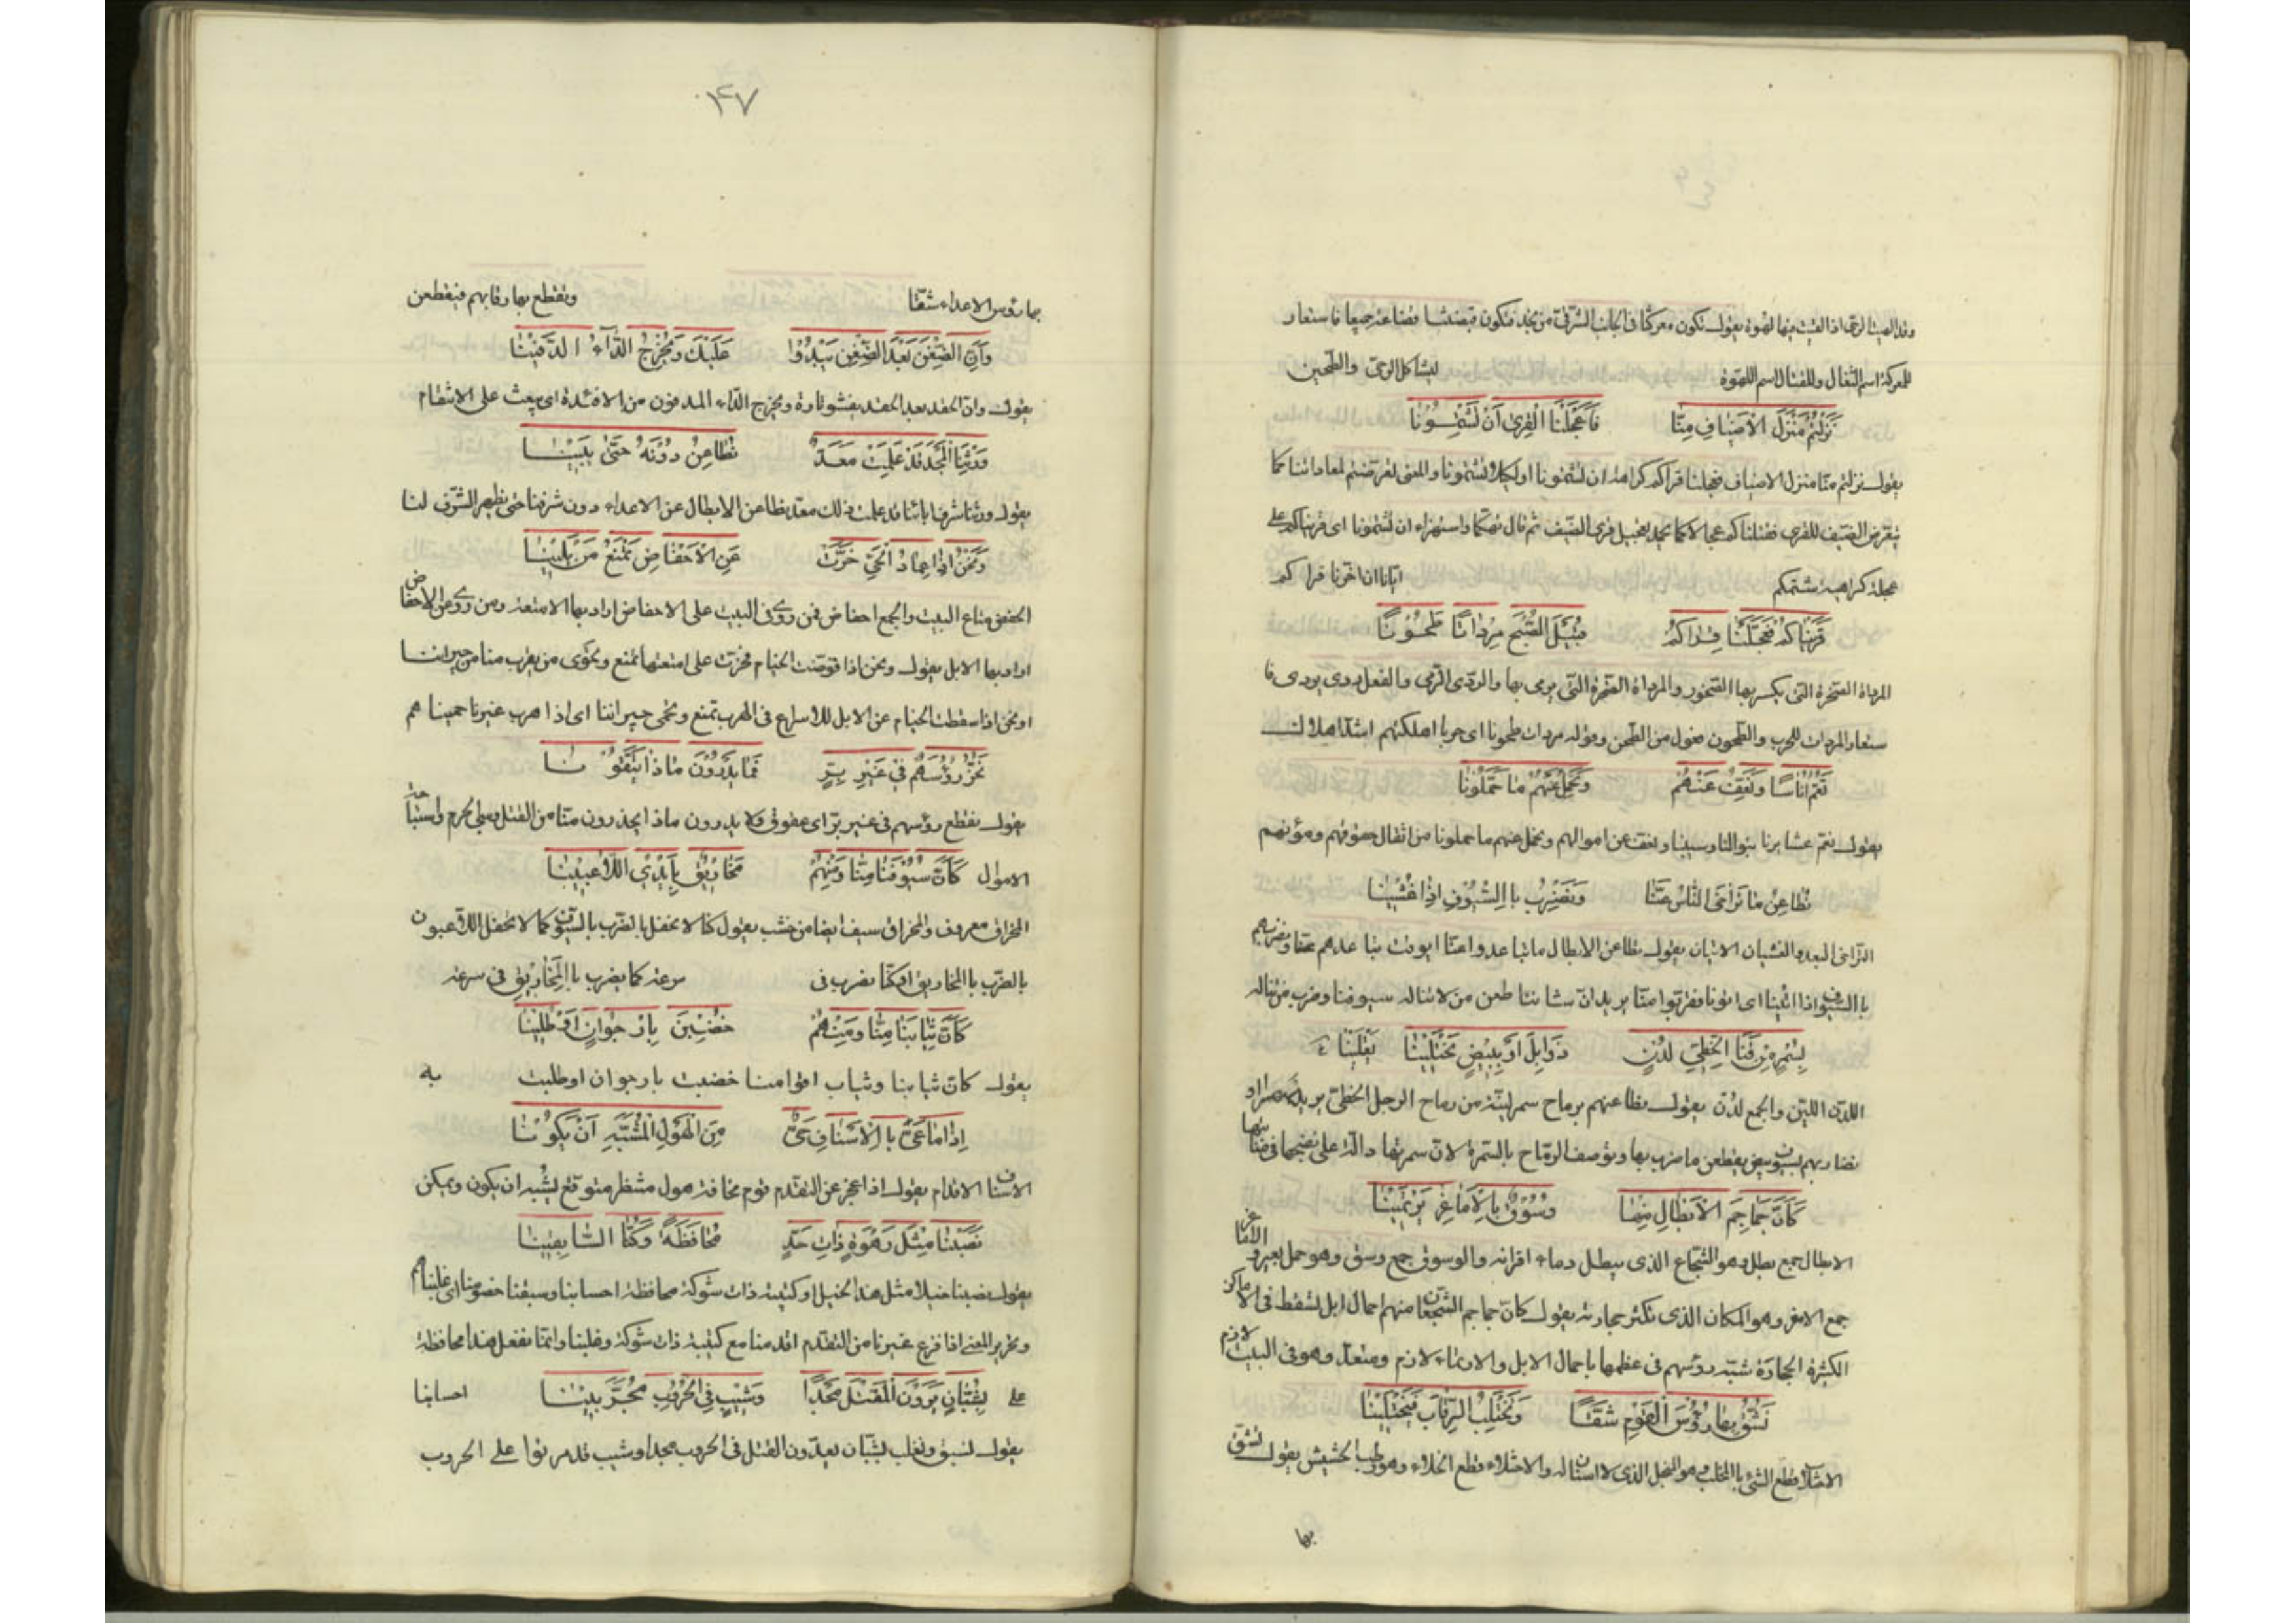 وقد الهيت الرحى اذا القيت فيها لهوة يقول تكون معركتنا فى الجانب الشرقى من نجد فتكون قبضتنا قضاعة جميعا فاستعار
للمعركة اسم الثفال وللقتال اسم اللهوة ليشاكل الرحى والطحين
نَزَلْتُمْ مَنْزِلَ الْاَضْيَافِ مِنَّا فَاَعْجَلْنَا الْقِرىٰ اَنْ تَشْتِمُونَا
يقول نزلتم منا منزل الاضياف فعجلنا قراكم كراهة ان تشتمونا او لكيلا تشتمونا والمعنى تعرضتم لمعاداتنا كما
يتعرض الضيف للقرى فقتلناكم عجالا كما يحمد تعجيل قرى الضيف ثم قال تهكما واستهزاء ان تشتمونا اى قريناكم على
عجلة كراهية شتمكم ايانا ان اخرنا قراكم
قَرَيْنَاكُمْ فَعَجَّلْنَا قِرَاكُمْ قُبَيْلَ الصُّبْحِ مِرْدَاتًا طَحُوْنًا
المرداة الصخرة التى يكسر بها الصخور والمرداة الصخرة التى يرمى بها والردى الرمى والفعل ردى يردى فا
ستعار المردات للحرب والطحون فعول من الطحن وقوله مردات طحونا اى حربا اهلكتهم اشد اهلاك
نَعُمُّ اُنَاسًا وَنَعِفُّ عَنْهُمْ وَنَحْمِلُ عَنْهُمْ مَا حَمَّلُونَا
يقول نعم عشايرنا بنوالنا وسيبنا ونعف عن اموالهم ونحمل عنهم ما حملونا من اثقال حقوقهم ومؤنهم
نُطَاعِنُ مَا تَرَاخَى النَّاسُ عَنَّا وَنَضْرِبُ بِاالسُّيُوْفِ اِذَا غُشِيْنَا
التراخى البعد والغشيان الاتيان يقول نطاعن الابطال ما تباعدوا عنا اى وقت تباعدهم عنا ونضربهم
باالسيوف اذا اتينا اى اتونا فقربوا منا يريد ان شاننا طعن من لا تناله سيوفنا وضرب من تناله
بِسُمْرٍ مِنْ قَنَا الْخَطِّيِّ لُدْنٍ ذَوَابِلَ اَوْ بِبِيْضٍ يَخْتَلِيْنَا يَعْتَلِيْنَا
اللدن اللين والجمع لُدْن يقول نطاعنهم برماح سمر لينة من رماح الرجل الخطى يريد
نضاربهم بسيوف بيض يقطعن ما ضرب بها وتوصف الرماح بالسمرة لان سمرتها دالة على نضجها فى منابتها
كَاَنَّ جَمَاجِمَ الْاَبْطَالِ مِنْهَا وُسُوْقٌ بِالْاَمَاعِزِ يَرْتَمِيْنَا
الابطال جمع بطل وهو الشجاع الذى يبطل دماء اقرانه والوسوق جمع وسق وهو حمل بعير و الاماعز
جمع الامعز وهو المكان الذى تكثر حجارته يقول كان جماجم الشجعان منهم احمال ابل تسقط فى الاماكن
الكثيرة الحجارة شبه رؤسهم فى عظمها باحمال الابل والارتماء لازم ومتعد وهو فى البيت لازم
نَشُقُّ بِهَا رُؤُسَ الْقَوْمِ شَقًّا وَنَخْتَلِبُ الرِّقَابَ فَيَخْتَلِيْنَا
الاختلاب قطع الشئ باالمخلب وهو المنجل الذى لا اسنان له والاختلاء قطع الخلاء وهو رطب الحشيش يقول نشق
بها
٤٧
بها رؤس الاعداء شقا ونقطع بها رقابهم فيقطعن
وَاَنَّ الضِّغْنَ بَعْدَ الضِّغْنِ يَبْدُوْا عَلَيْكَ وَيُخْرِجُ الدَّآءَ الدَّفِيْنَا
يقول وان الحقد بعد الحقد يفشو تارة ويخرج الداء المدفون من الافئدة اى يبعث على الانتقام
وَرِثْنَا الْمَجْدَ قَدْ عَلِمَتْ مَعَدٌّ نُطَاعِنُ دُوْنَهُ حَتّىٰ يَبِيْنَا
يقول ورثنا شرف ابائنا قد علمت ذلك معد نطاعن الابطال عن الاعداء دون شرفنا حتى يظهر الشرف لنا
وَنَحْنُ اِذَا عِمَادُ الْحَىِّ خَرَّتْ عَنِ الْاَحْفَاضِ نَمْنَعُ مَنْ يَلِيْنَا
الحفض متاع البيت والجمع احفاض فمن روى فى البيت على الاحفاض اراد بها الامتعة ومن روى عن الاحفاض
اراد بها الابل يقول ونحن اذا قوضت الخيام فخرت على امتعتها نمنع ونحوى من يقرب منا من جيراننا
او نحن اذا سقطت الخيام عن الابل للاسراع فى الهرب نمنع ونحمى جيراننا اى اذا هرب غيرنا حمينا هم
نَجُزُّ رُؤُسَهُمْ فِى غَيْرِ بِرٍّ فَمَا يَدْرُوْنَ مَاذَا يَتَّقُوْنَا
يقول نقطع رؤسهم فى غير بر اى عقوق ولا يدرون ماذا يحذرون منا من القتل وسبى الحرم واستباحة
الاموال كَاَنَّ سُيُوْفَنَا مِنَّا وَمِنْهُمْ مَخَارِيْقٌ بِاَيْدِى اللَّاعِبِيْنَا
المخراق معروف والمخراق سيف ايضا من خشب يقول كنا لا نحفل بالضرب بالسيوف كما لا يحفل اللاعبون
بالضرب باالمخاريق او كنا نضرب فى سرعة كما يضرب باالمخاريق فى سرعة
كَاَنَّ ثِيَابَنَا مِنَّا وَمِنْهُمْ خُضِبْنَ بِاَرْجُوَانٍ اَوْ طُلِيْنَا
يقول كان ثيابنا وثياب اقراننا خضبت بارجوان اوطليت به
اِذَا مَا عَىَّ بِاالْاَسْنَافِ حَىٌّ مِنَ الْهَوْلِ الْمُشَبَّهِ اَنْ يَكُوْنَا
الاسناف الاقدام يقول اذا عجز عن التقدم قوم مخافة هول منتظر متوقع يشبه ان يكون ويمكن
نَصَبْنَا مِثْلَ رَهْوَةٍ ذَاتِ حَدٍّ مُحَافَظَةً وَكُنَّا السَّابِقِيْنَا
يقول نصبنا خيلا مثل هذا الخيل او كتيبة ذات شوكة محافظة احسابنا وسبقنا خصومنا اى غلبناهم
وتحرير المعنى اذا فزع غيرنا من التقدم اقدمنا مع كتيبة ذات شوكة وغلبنا وانما نفعل هذا محافظة
على بِشُبَّانٍ يَرَوْنَ الْقَتْلَ مَجْدًا وَشِيْبٍ فِى الْحُرُوْبِ مُجَرَّبِيْنَا احسابنا
يقول نسبق ونغلب بشبان يعدون القتل فى الحروب مجدا وشيب قد مرنوا على الحروب